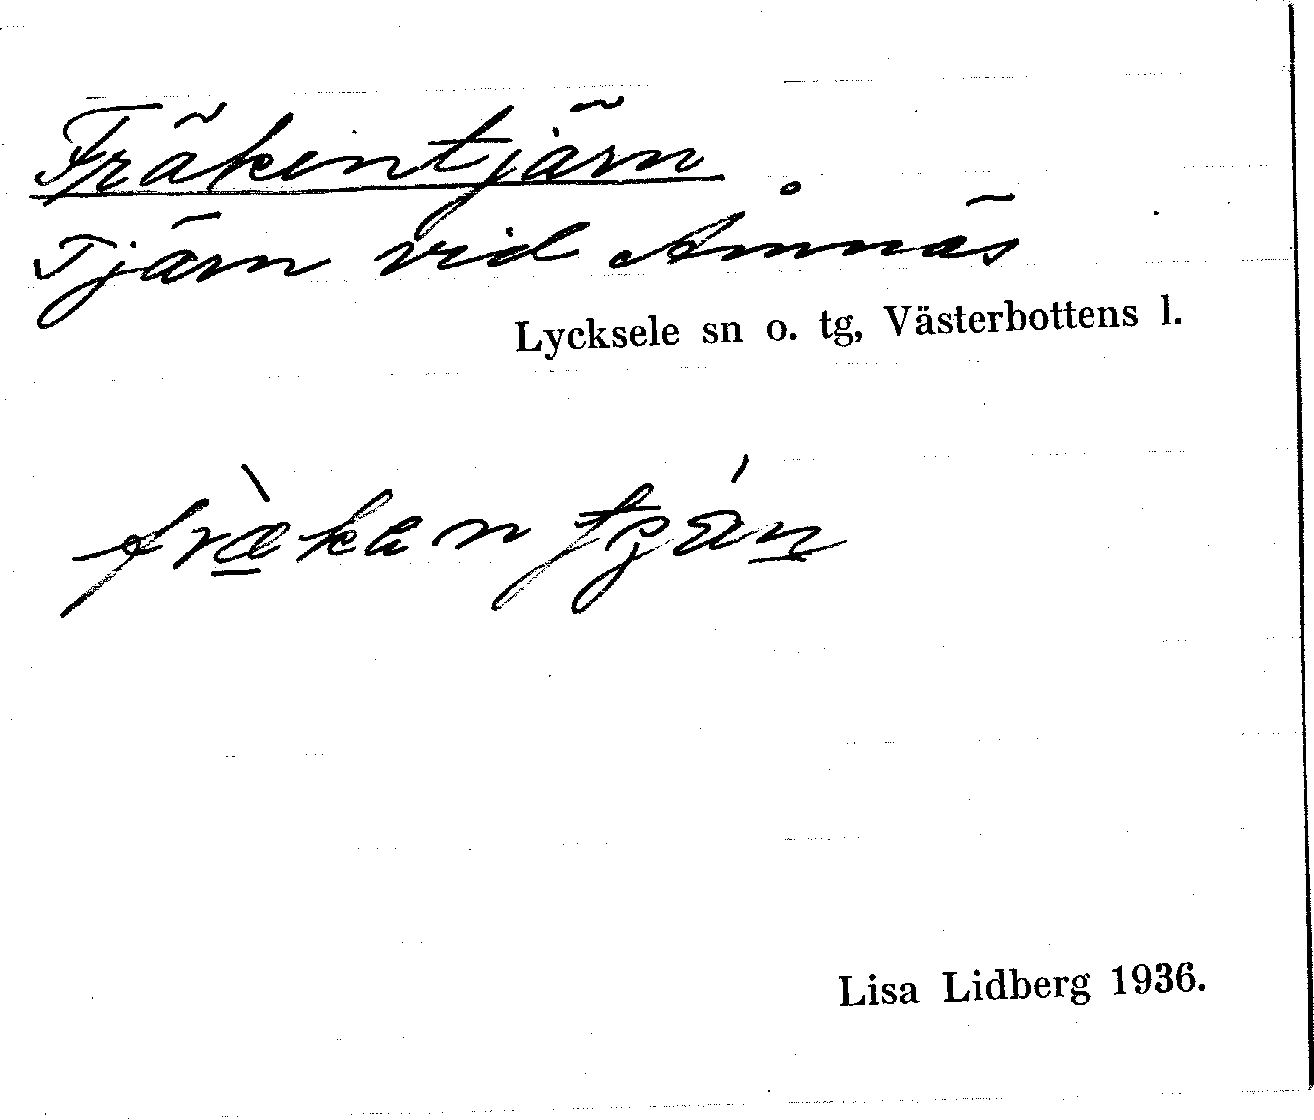 Fräkentjärn
Tjärn vid Åmnäs
Lycksele sn o. tg, Västerbottens l.
Lisa Lidberg 1936.